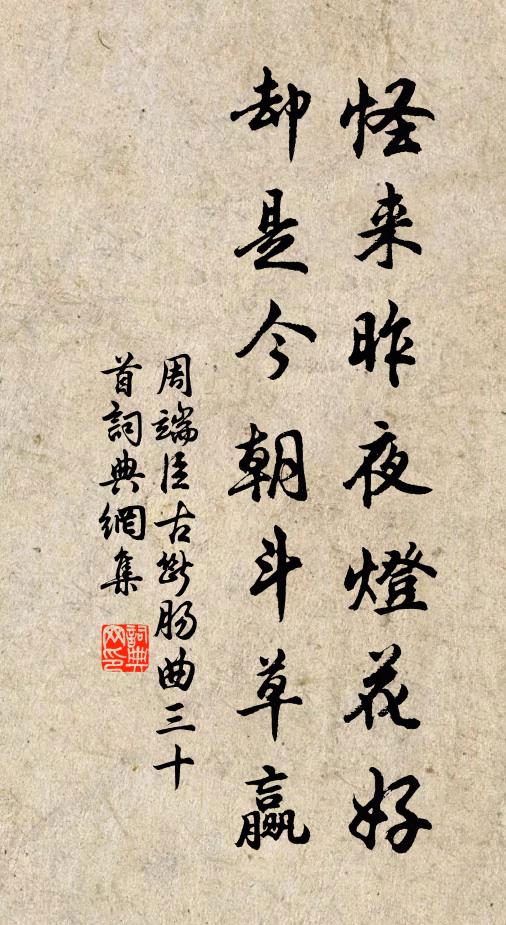 怪来昨夜燈花好
却是今朝斗草贏
周端臣古断肠曲三十
首詞典網集
詞典网印